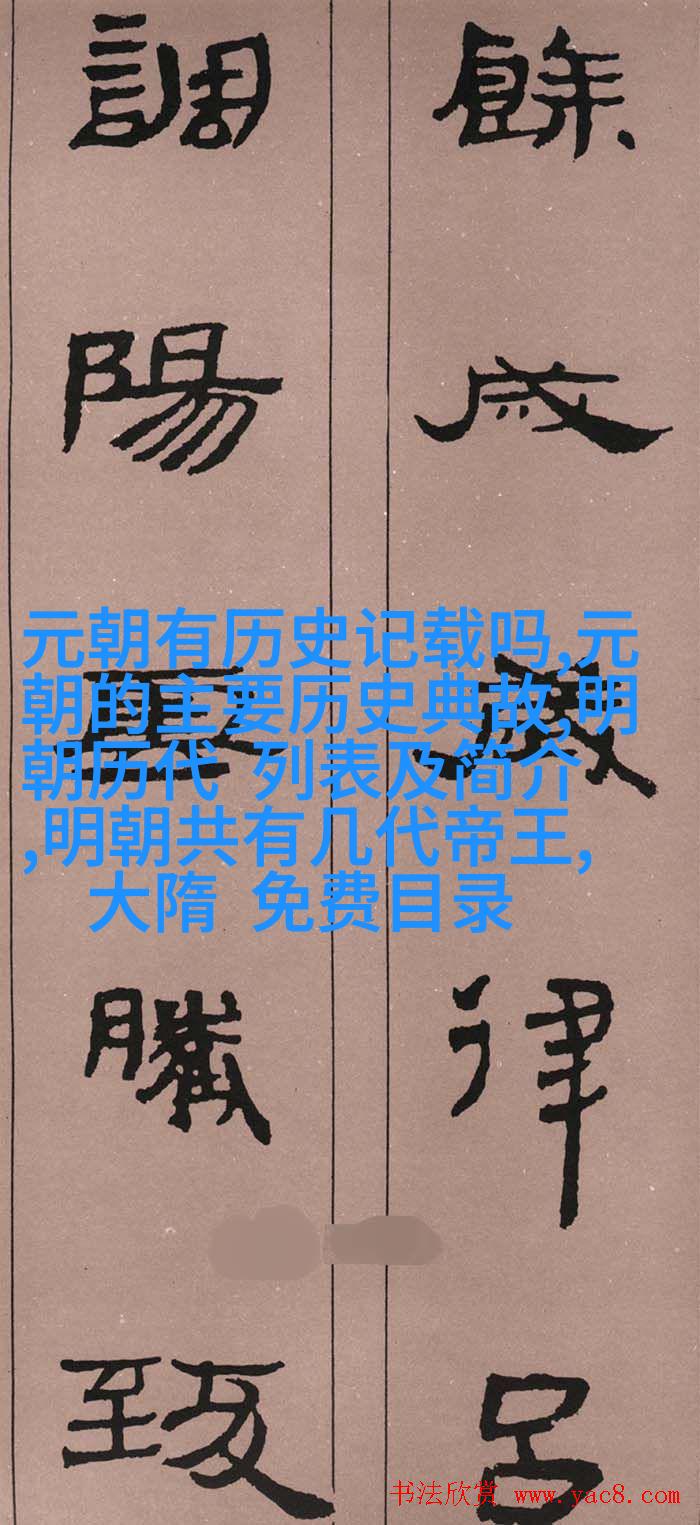 餘成歲律呂
調陽雲騰致
元朝有历史记载吗,元
朝的主要历史典故,明
朝历代 列表及简介
,明朝共有几代帝王,
大隋 免费目录
书法欣赏 www.yac8.com